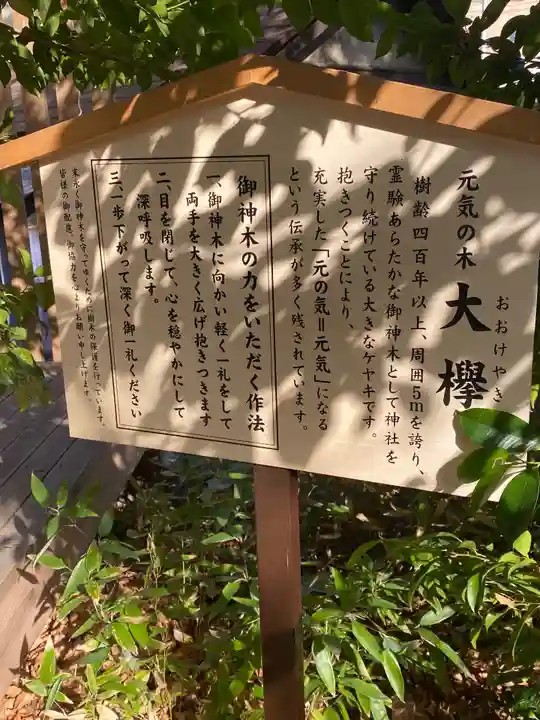 元気の木 大欅
おおけやき
樹齢四百年以上、周囲5mを誇り、
霊験あらたかな御神木として神社を
守り続けている大きなケヤキです。
抱きつくことにより、
充実した「元の気＝元気」になる
という伝承が多く残されています。
御神木の力をいただく作法
一、御神木に向かい軽く一礼をして
両手を大きく広げ抱きつきます
二、目を閉じて、心を穏やかにして
深呼吸します。
三、一歩下がって深く御一礼ください
末永く御神木を守ってゆくために樹木の保護を行っています。
皆様の御配慮、御協力を心よりお願い申し上げます。